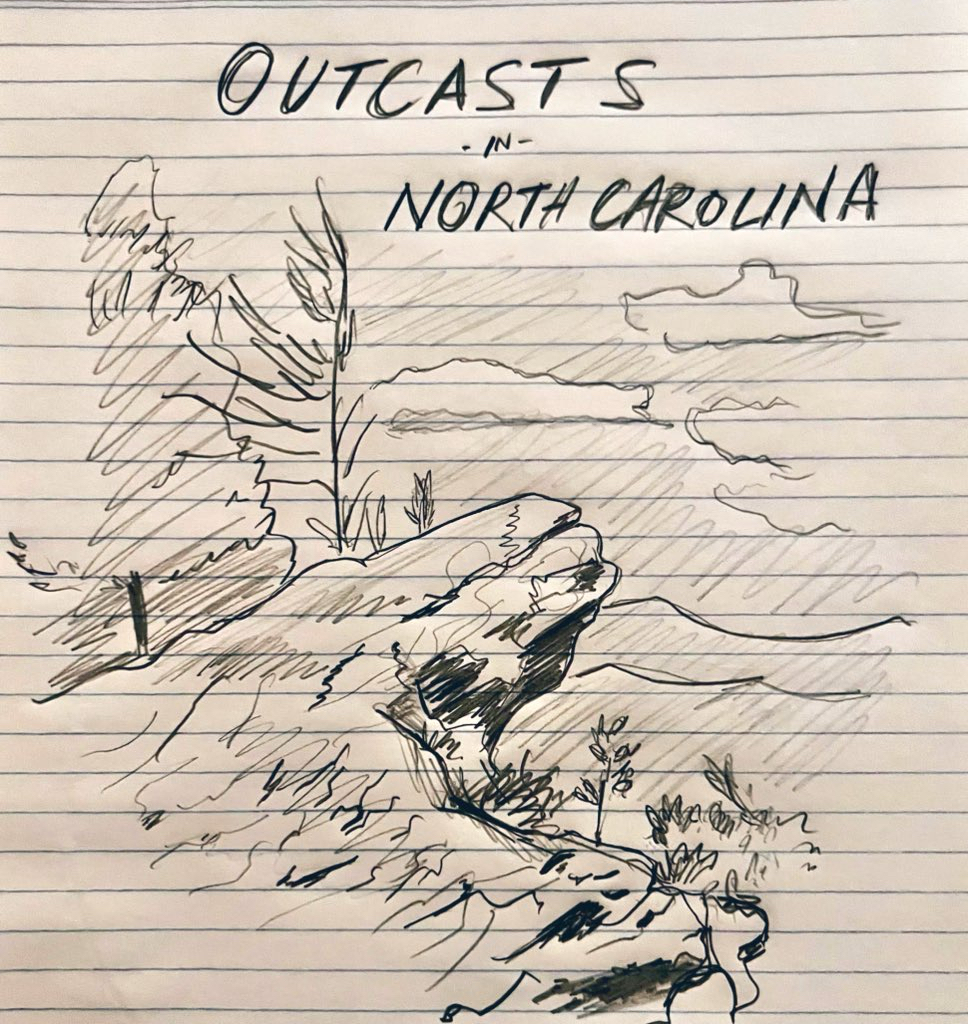 OUTCASTS
-IN-
NORTH CAROLINA